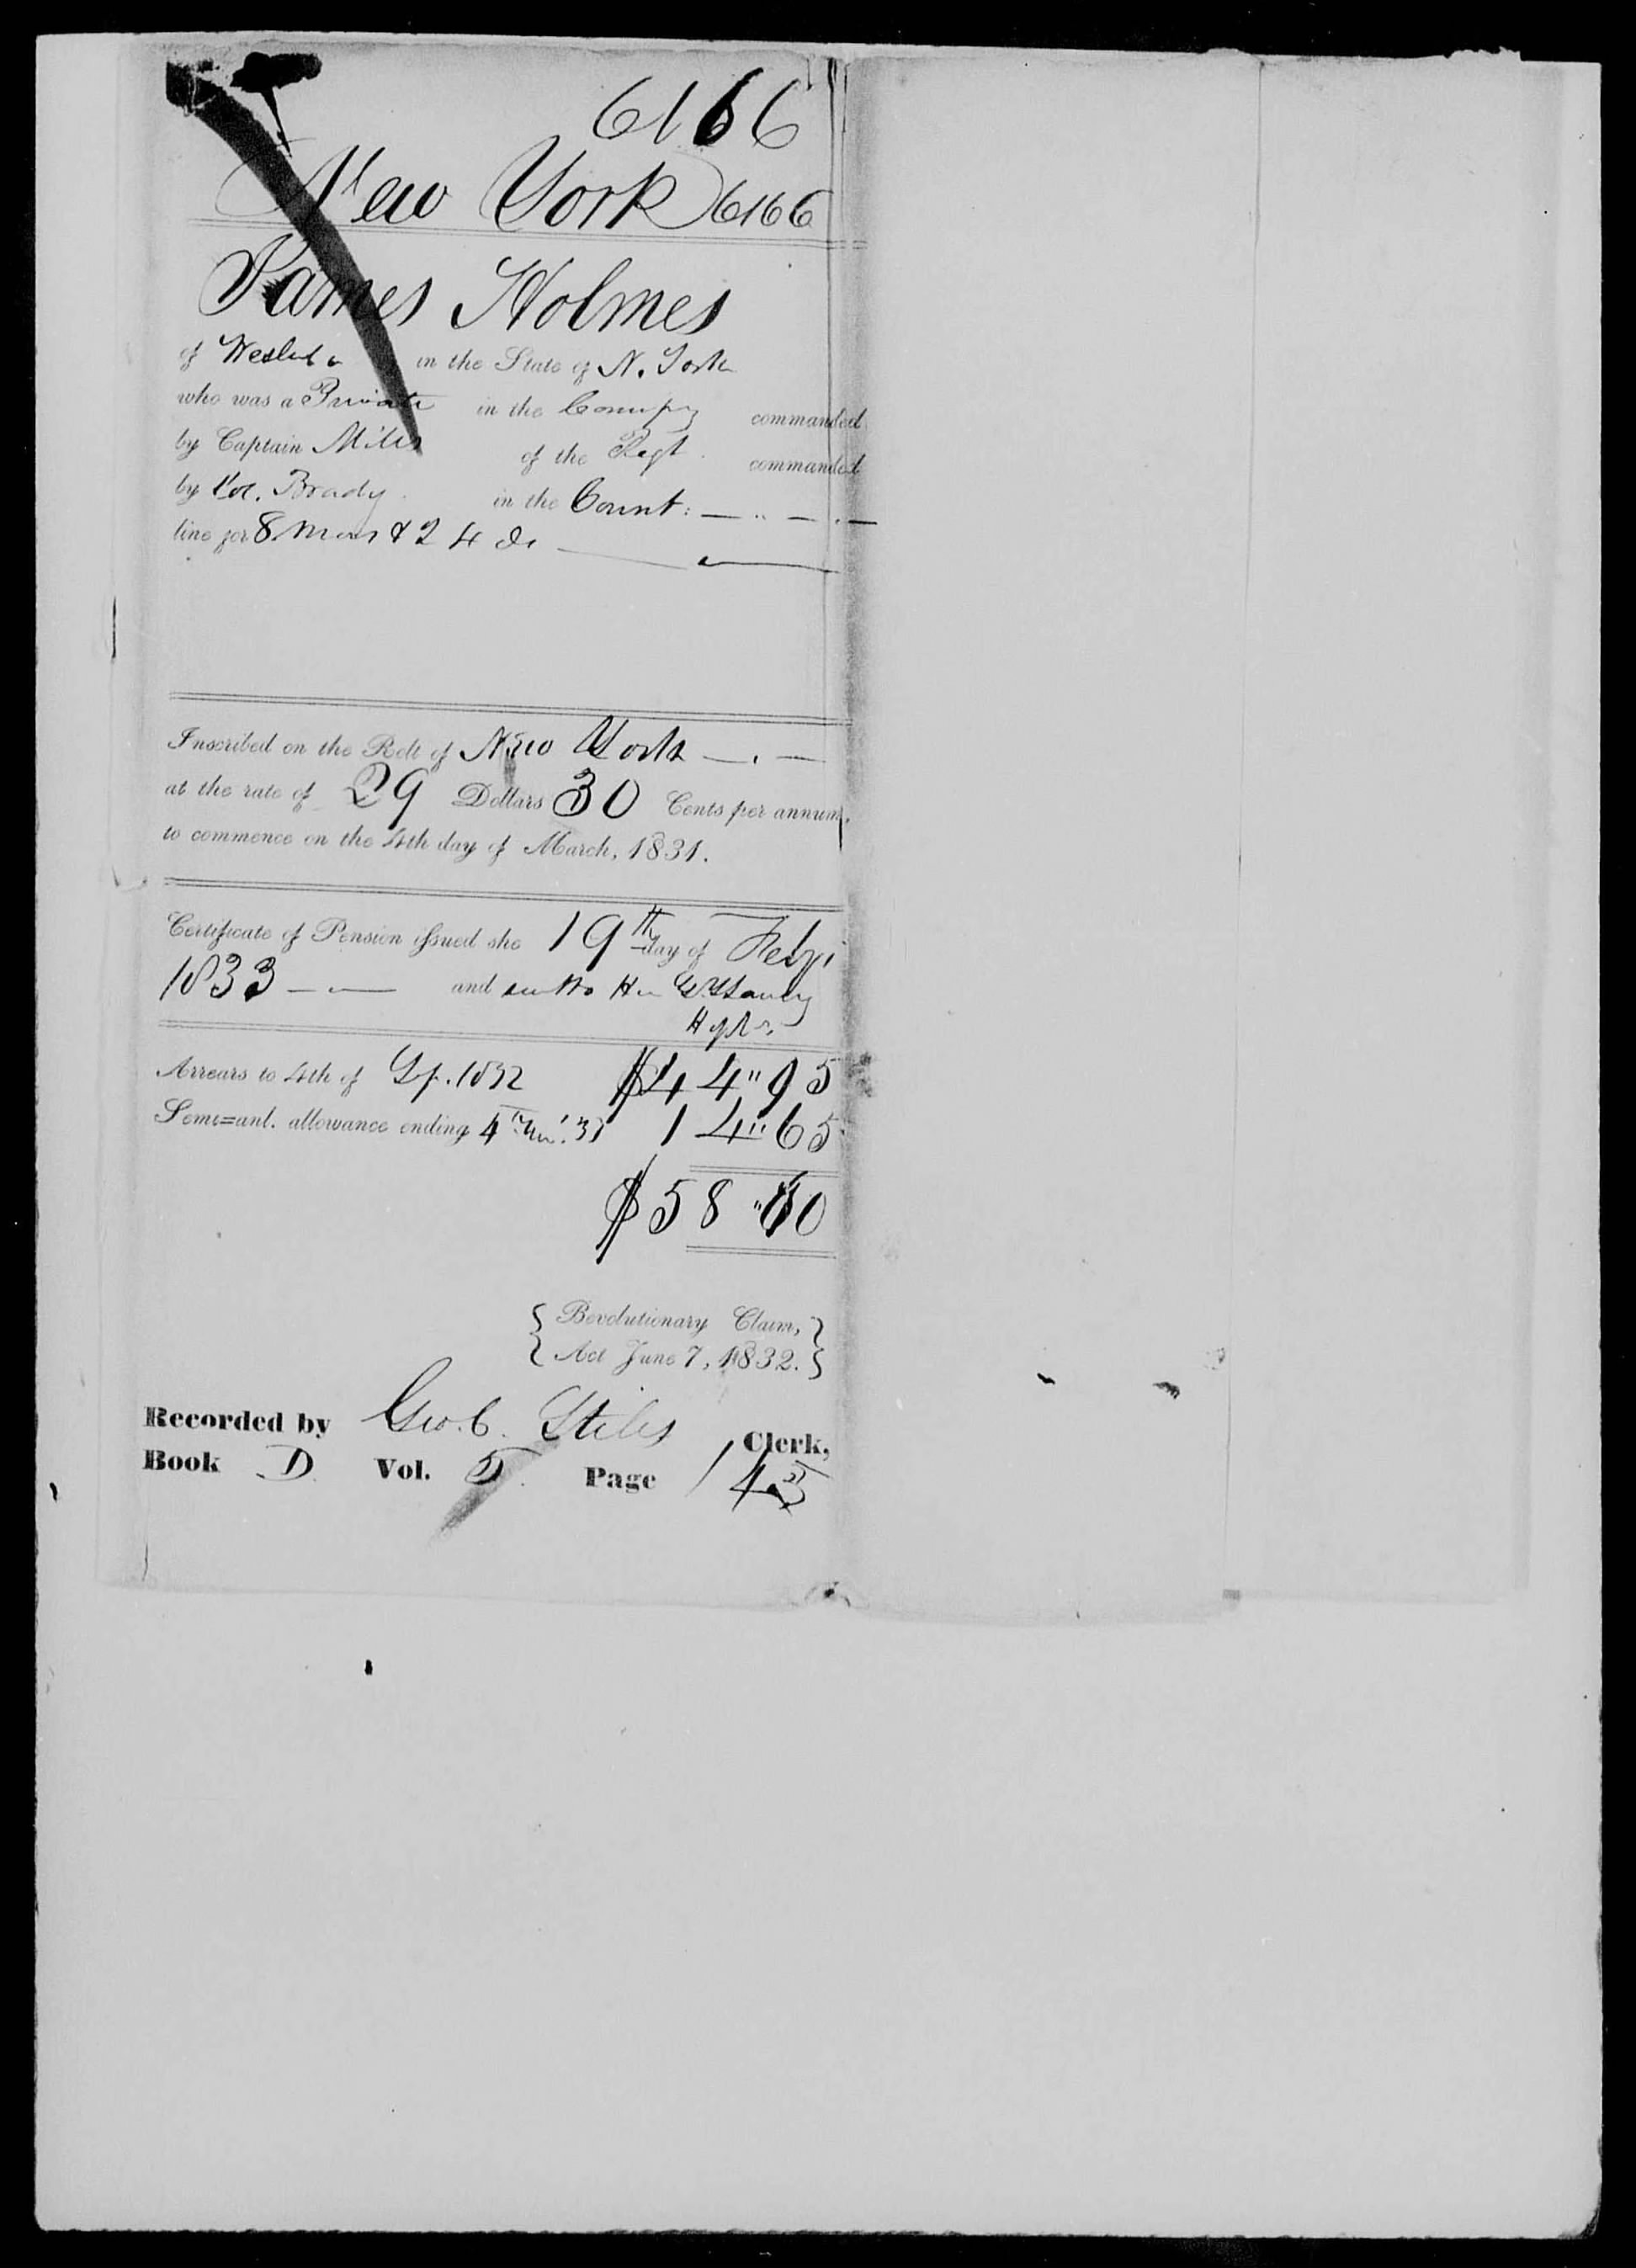 6166
New York 6166
James Holmes
of in the State of N. York
who was a Private in the Compy commanded
by Captain Mills of the Regt. commanded
by Col. Brady in the Contl: — .. — . —
line for 8 Mons & 24 ds
Inscribed on the Roll of New York — . —
at the rate of 29 Dollars 30 Cents per annum,
to commence on the 4th day of March, 1831.
Certificate of Pension issued the 19th day of Feby
1833 and sent to Hon
H of Rs.
Arrears to 4th of Sep. 1832 $44"95
Semi=anl. allowance ending 4th 33 14"65
$58"60
{ Revolutionary Claim, }
{ Act June 7, 1832. }
Recorded by Geo. C. Stiles Clerk,
Book D Vol. 5 Page 143